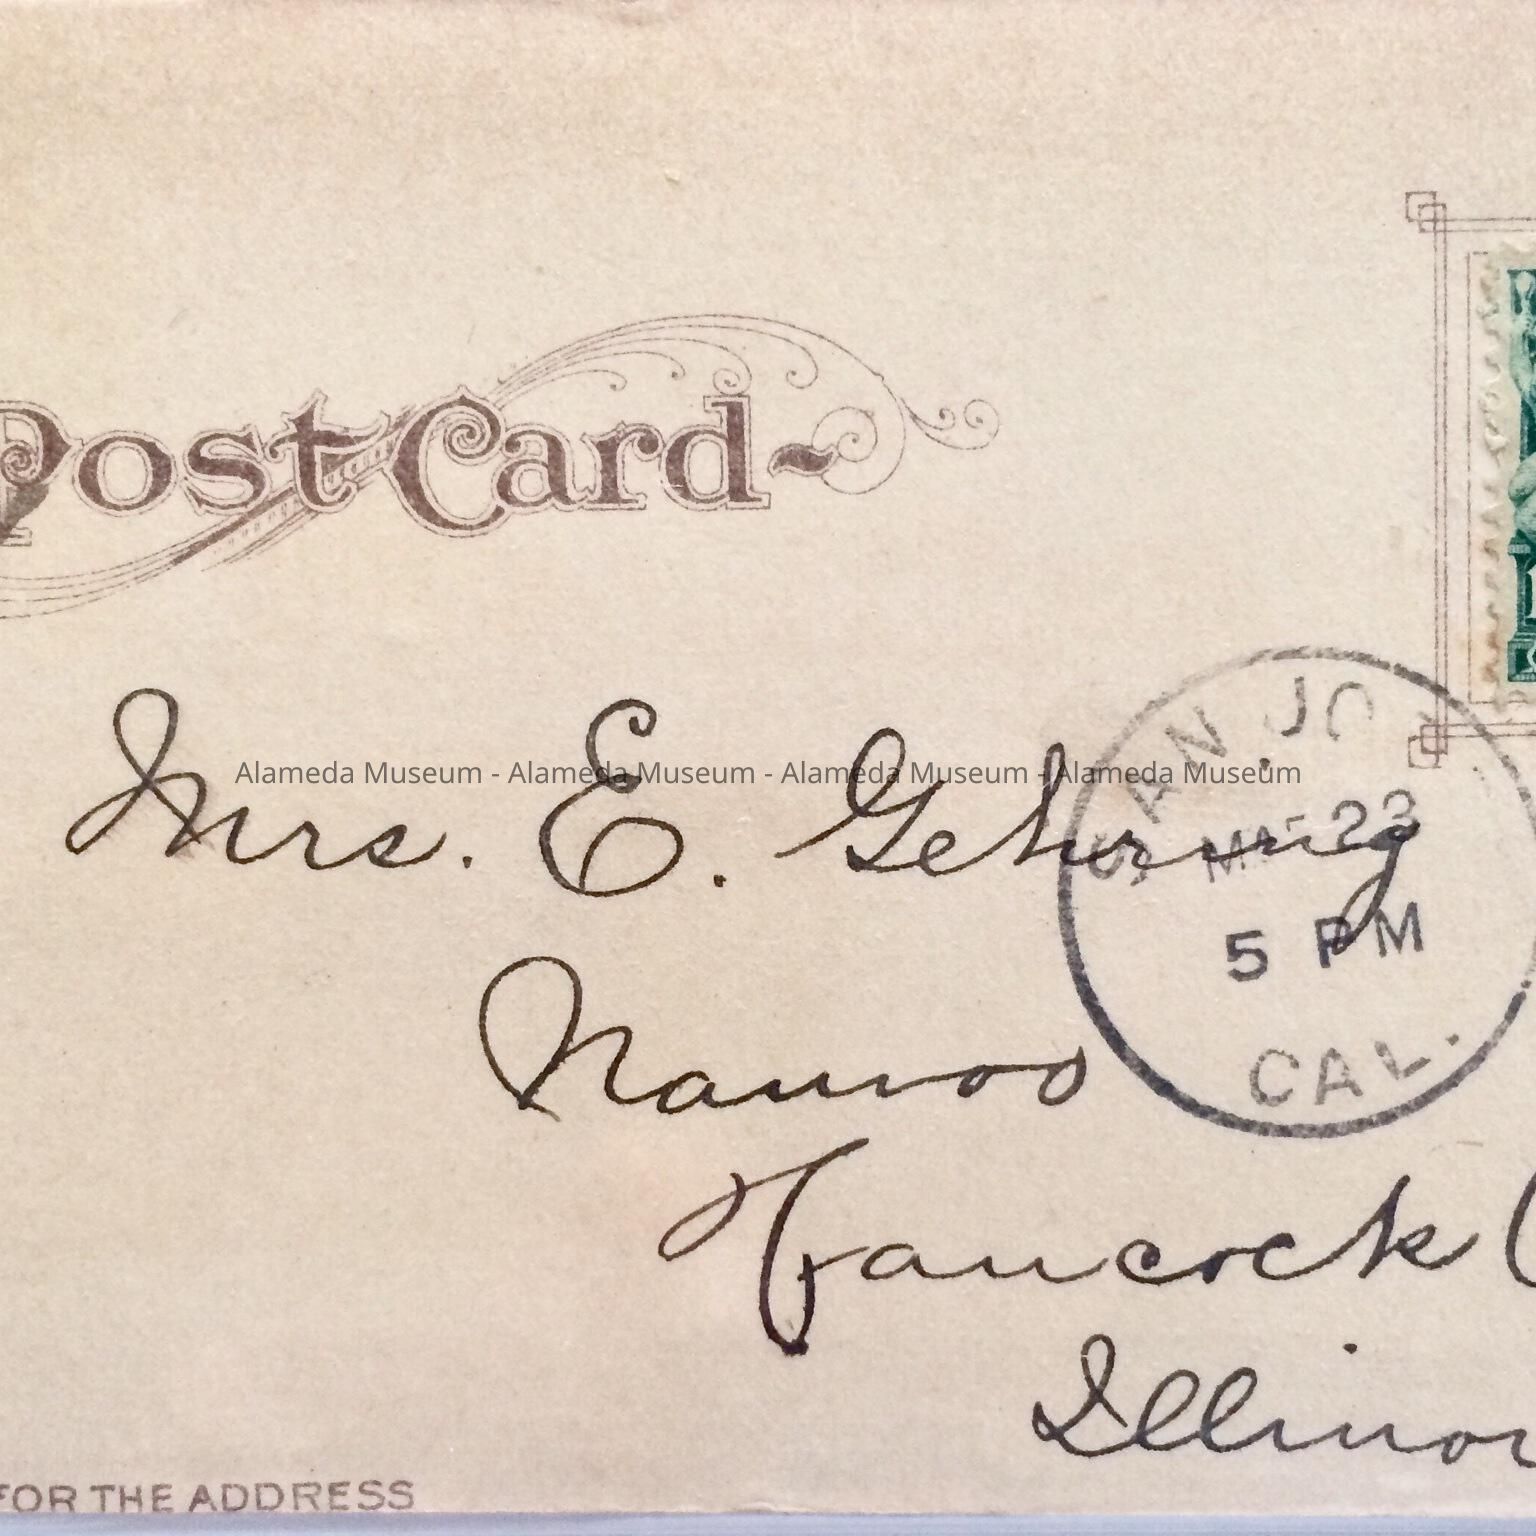 Post Card
SAN JO
Alameda Museum - Alameda Museum - Alameda Museum - Alameda Museum
Mrs. E. Gehring
MAR 23
5 PM
Nauvoo
CAL.
Hancock
Illinoi
FOR THE ADDRESS